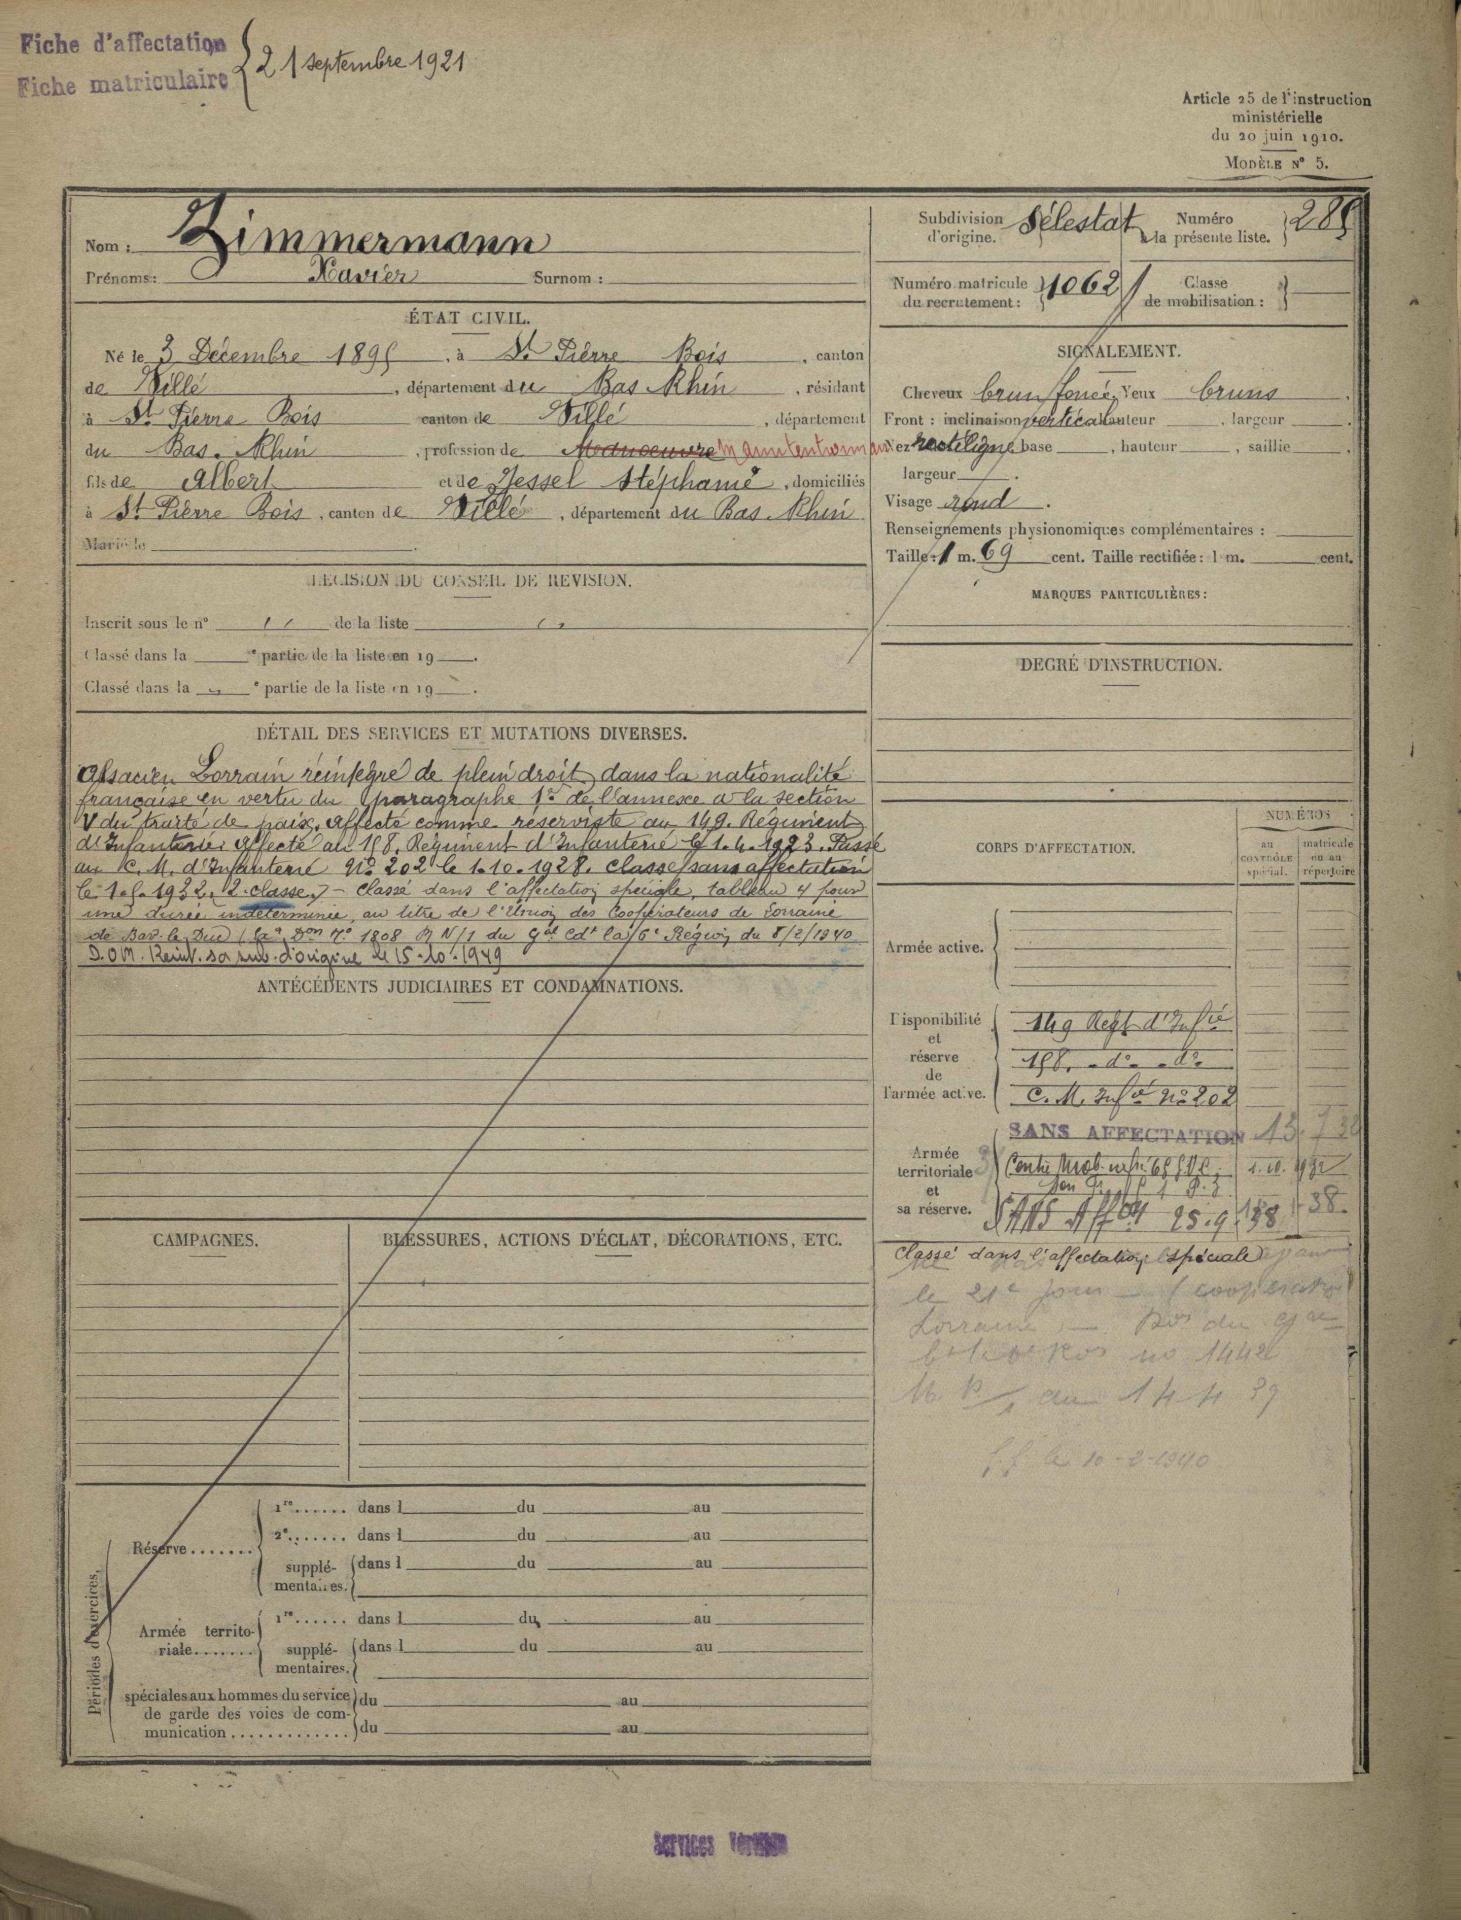 Fiche d'affectation
Fiche matriculaire
21 septembre 1921
Article 25 de l'instruction
ministérielle
du 20 juin 1910.
MODÈLE N° 5.
Nom : Zimmermann
Prénoms : Xavier Surnom :
Subdivision d'origine. Sélestat
Numéro à la présente liste. 285
Numéro matricule du recrutement : 1062
Classe de mobilisation :
ÉTAT CIVIL.
Né le 3 Décembre 1895, à St Pierre Bois, canton
de Villé, département du Bas Rhin, résidant
à St Pierre Bois canton de Villé, département
du Bas-Rhin, profession de Manoeuvre
fils de Albert et de Jessel Stéphanie, domiciliés
à St Pierre Bois, canton de Villé, département du Bas-Rhin
Marié le
SIGNALEMENT.
Cheveux brun foncé. Yeux bruns.
Front : inclinaison vertical hauteur , largeur .
Nez rectiligne base , hauteur , saillie ,
largeur .
Visage rond .
Renseignements physionomiques complémentaires :
Taille : 1 m. 69 cent. Taille rectifiée : 1 m. cent.
MARQUES PARTICULIÈRES :
DÉCISION DU CONSEIL DE REVISION.
Inscrit sous le n° " de la liste "
Classé dans la e partie de la liste en 19 .
Classé dans la e partie de la liste en 19 .
DEGRÉ D'INSTRUCTION.
DÉTAIL DES SERVICES ET MUTATIONS DIVERSES.
Alsacien Lorrain réintégré de plein droit dans la nationalité
française en vertu du paragraphe 1er de l'annexe à la section
V du traité de paix. Affecté comme réserviste au 149. Régiment
d'Infanterie. Affecté au 158. Régiment d'Infanterie le 1.4.1923. Passé
au C. M. d'Infanterie No 202 le 1.10.1928. Classé sans affectation
le 1.5.1932. 2. classe. - Classé dans l'affectation spéciale, tableau 4 pour
une durée indéterminée, au titre de l'Union des Coopérateurs de Lorraine
de Bar-le-Duc Don No 1808 R N/1 du Gal Cdt la 6e Région du 8/2/1940
D.O.M. Reint. sa sub. d'origine le 15-10-1949
ANTÉCÉDENTS JUDICIAIRES ET CONDAMNATIONS.
CORPS D'AFFECTATION.
NUMÉROS
au CONTRÔLE spécial.
matricule ou au répertoire
Armée active.
Disponibilité et réserve de l'armée active.
149 Regt d'Infie
158. - do - do
C. M. Infie No 202
Armée territoriale et sa réserve.
SANS AFFECTATION
SANS Affon 25.9.38
Classé dans l'affectation spéciale
le 21e jour
Lorraine
no 1442
14 4 39
le 10-2-1940
CAMPAGNES.
BLESSURES, ACTIONS D'ÉCLAT, DÉCORATIONS, ETC.
Périodes d'exercices.
Réserve.......
1re...... dans l du au
2e....... dans l du au
supplémentaires. dans l du au
Armée territoriale.......
1re...... dans l du au
supplémentaires. dans l du au
spéciales aux hommes du service
de garde des voies de com-
munication .............
du au
du au
Services